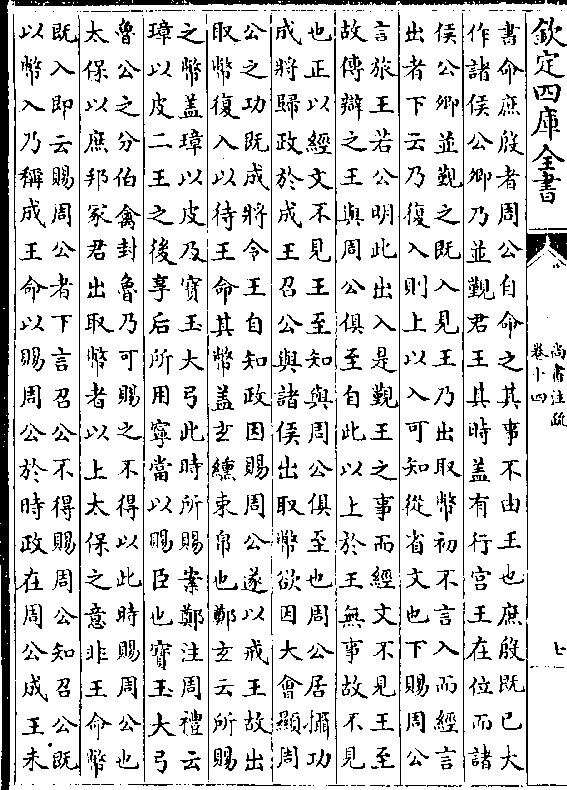 欽定四庫全書
尚書注疏
卷十四
七
書命庶殷者周公自命之其事不由王也庶殷既已大
作諸侯公卿乃並覲君王其時蓋有行宮王在位而諸
侯公卿並覲之既入見王乃出取幣初不言入而經言
出者下云乃復入則上以入可知從省文也下賜周公
言旅王若公明此出入是覲王之事而經文不見王至
故傳辯之王與周公俱至自此以上於王無事故不見
也正以經文不見王至知與周公俱至也周公居攝功
成將歸政於成王召公與諸侯出取幣欲因大會顯周
公之功既成將令王自知政因賜周公遂以戒王故出
取幣復入以待王命其幣蓋玄纁束帛也鄭玄云所賜
之幣蓋璋以皮及寶玉大弓此時所賜案鄭注周禮云
璋以皮二王之後享后所用寧當以賜臣也寶玉大弓
魯公之分伯禽封魯乃可賜之不得以此時賜周公也
太保以庶邦冢君出取幣者以上太保之意非王命幣
既入即云賜周公者下言召公不得賜周公知召公既
以幣入乃稱成王命以賜周公於時政在周公成王未